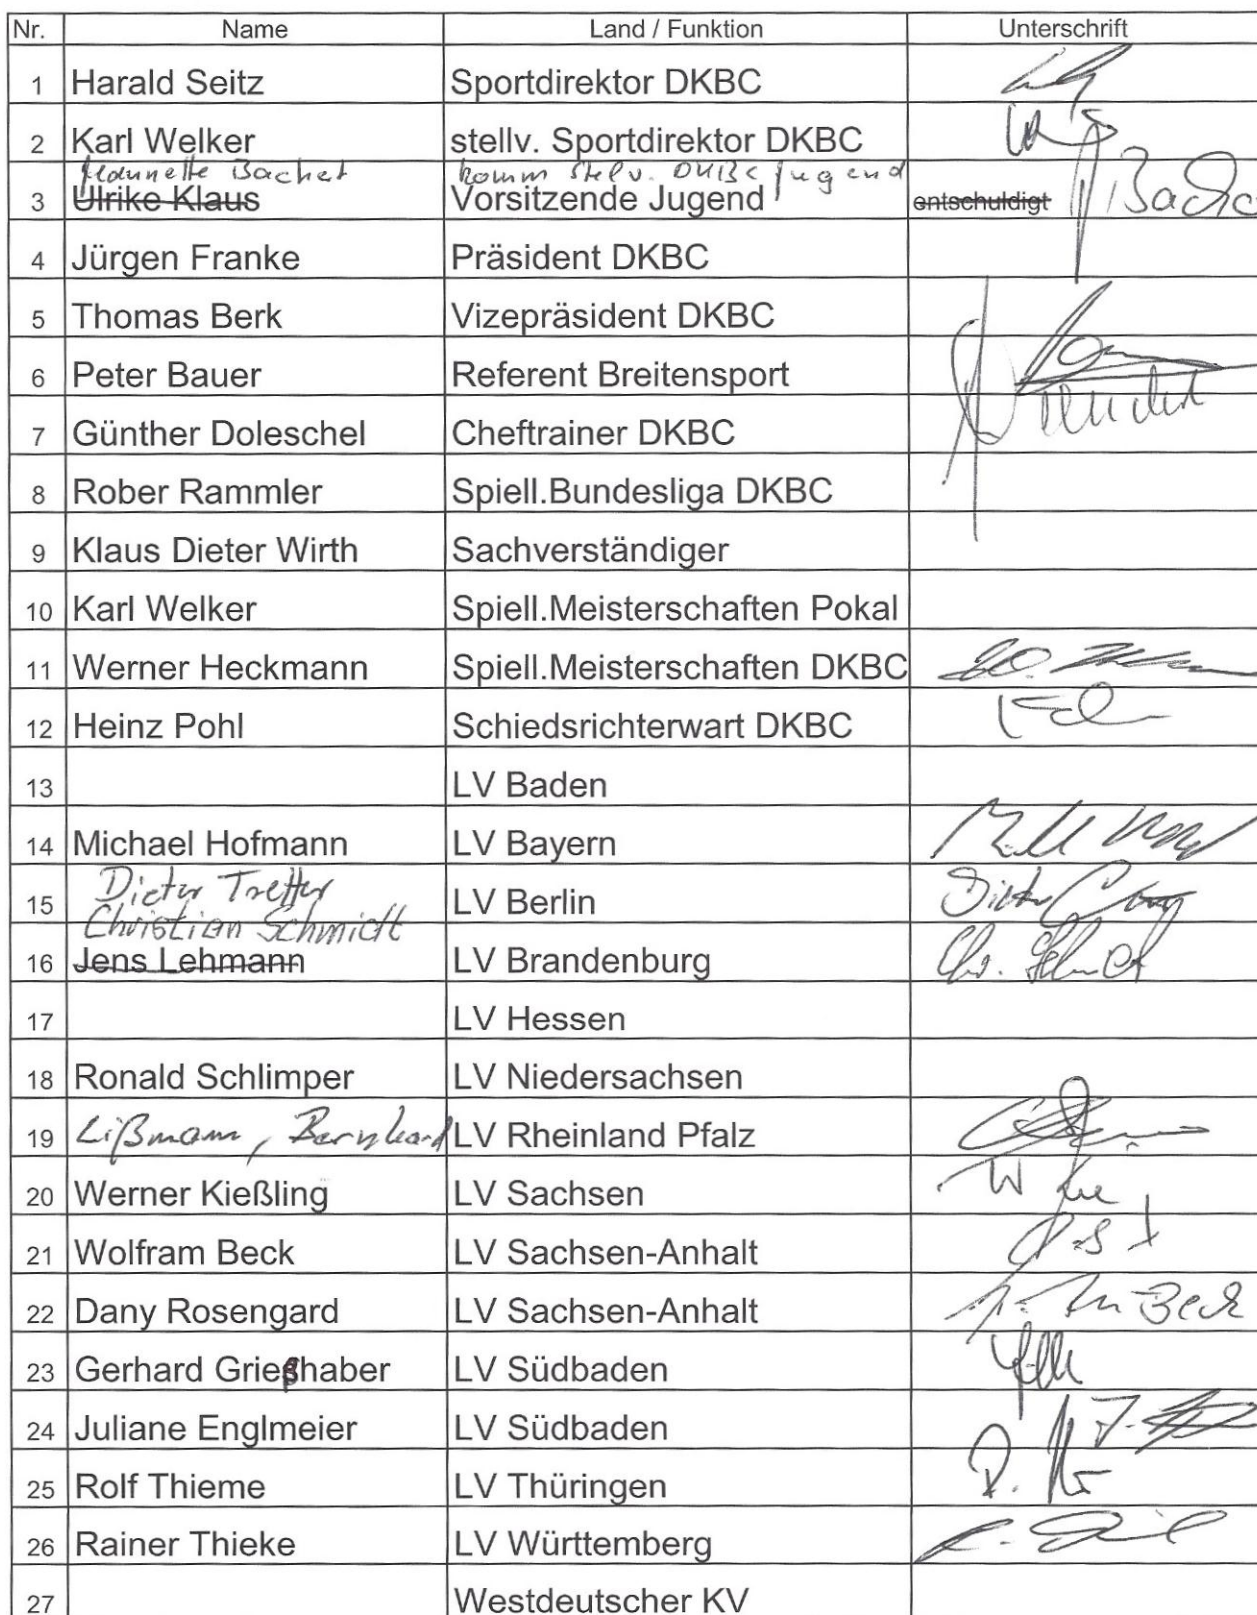 Nr. Name Land / Funktion Unterschrift
1 Harald Seitz Sportdirektor DKBC
2 Karl Welker stellv. Sportdirektor DKBC
Jeannette Bachert komm stelv. DKBC Jugend
3 Ulrike Klaus Vorsitzende Jugend entschuldigt
4 Jürgen Franke Präsident DKBC
5 Thomas Berk Vizepräsident DKBC
6 Peter Bauer Referent Breitensport
7 Günther Doleschel Cheftrainer DKBC
8 Rober Rammler Spiell.Bundesliga DKBC
9 Klaus Dieter Wirth Sachverständiger
10 Karl Welker Spiell.Meisterschaften Pokal
11 Werner Heckmann Spiell.Meisterschaften DKBC
12 Heinz Pohl Schiedsrichterwart DKBC
13 LV Baden
14 Michael Hofmann LV Bayern
15 Dieter Tretter LV Berlin
Christian Schmidt
16 Jens Lehmann LV Brandenburg
17 LV Hessen
18 Ronald Schlimper LV Niedersachsen
19 Lißmann, Bernhard LV Rheinland Pfalz
20 Werner Kießling LV Sachsen
21 Wolfram Beck LV Sachsen-Anhalt
22 Dany Rosengard LV Sachsen-Anhalt
23 Gerhard Grießhaber LV Südbaden
24 Juliane Englmeier LV Südbaden
25 Rolf Thieme LV Thüringen
26 Rainer Thieke LV Württemberg
27 Westdeutscher KV